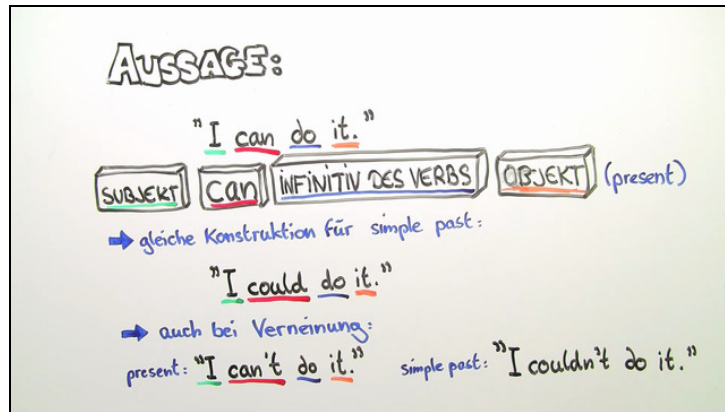 AUSSAGE:
"I can do it."
SUBJEKT can INFINITIV DES VERBS OBJEKT (present)
➡ gleiche Konstruktion für simple past:
"I could do it."
➡ auch bei Verneinung:
present: "I can't do it." simple past: "I couldn't do it."